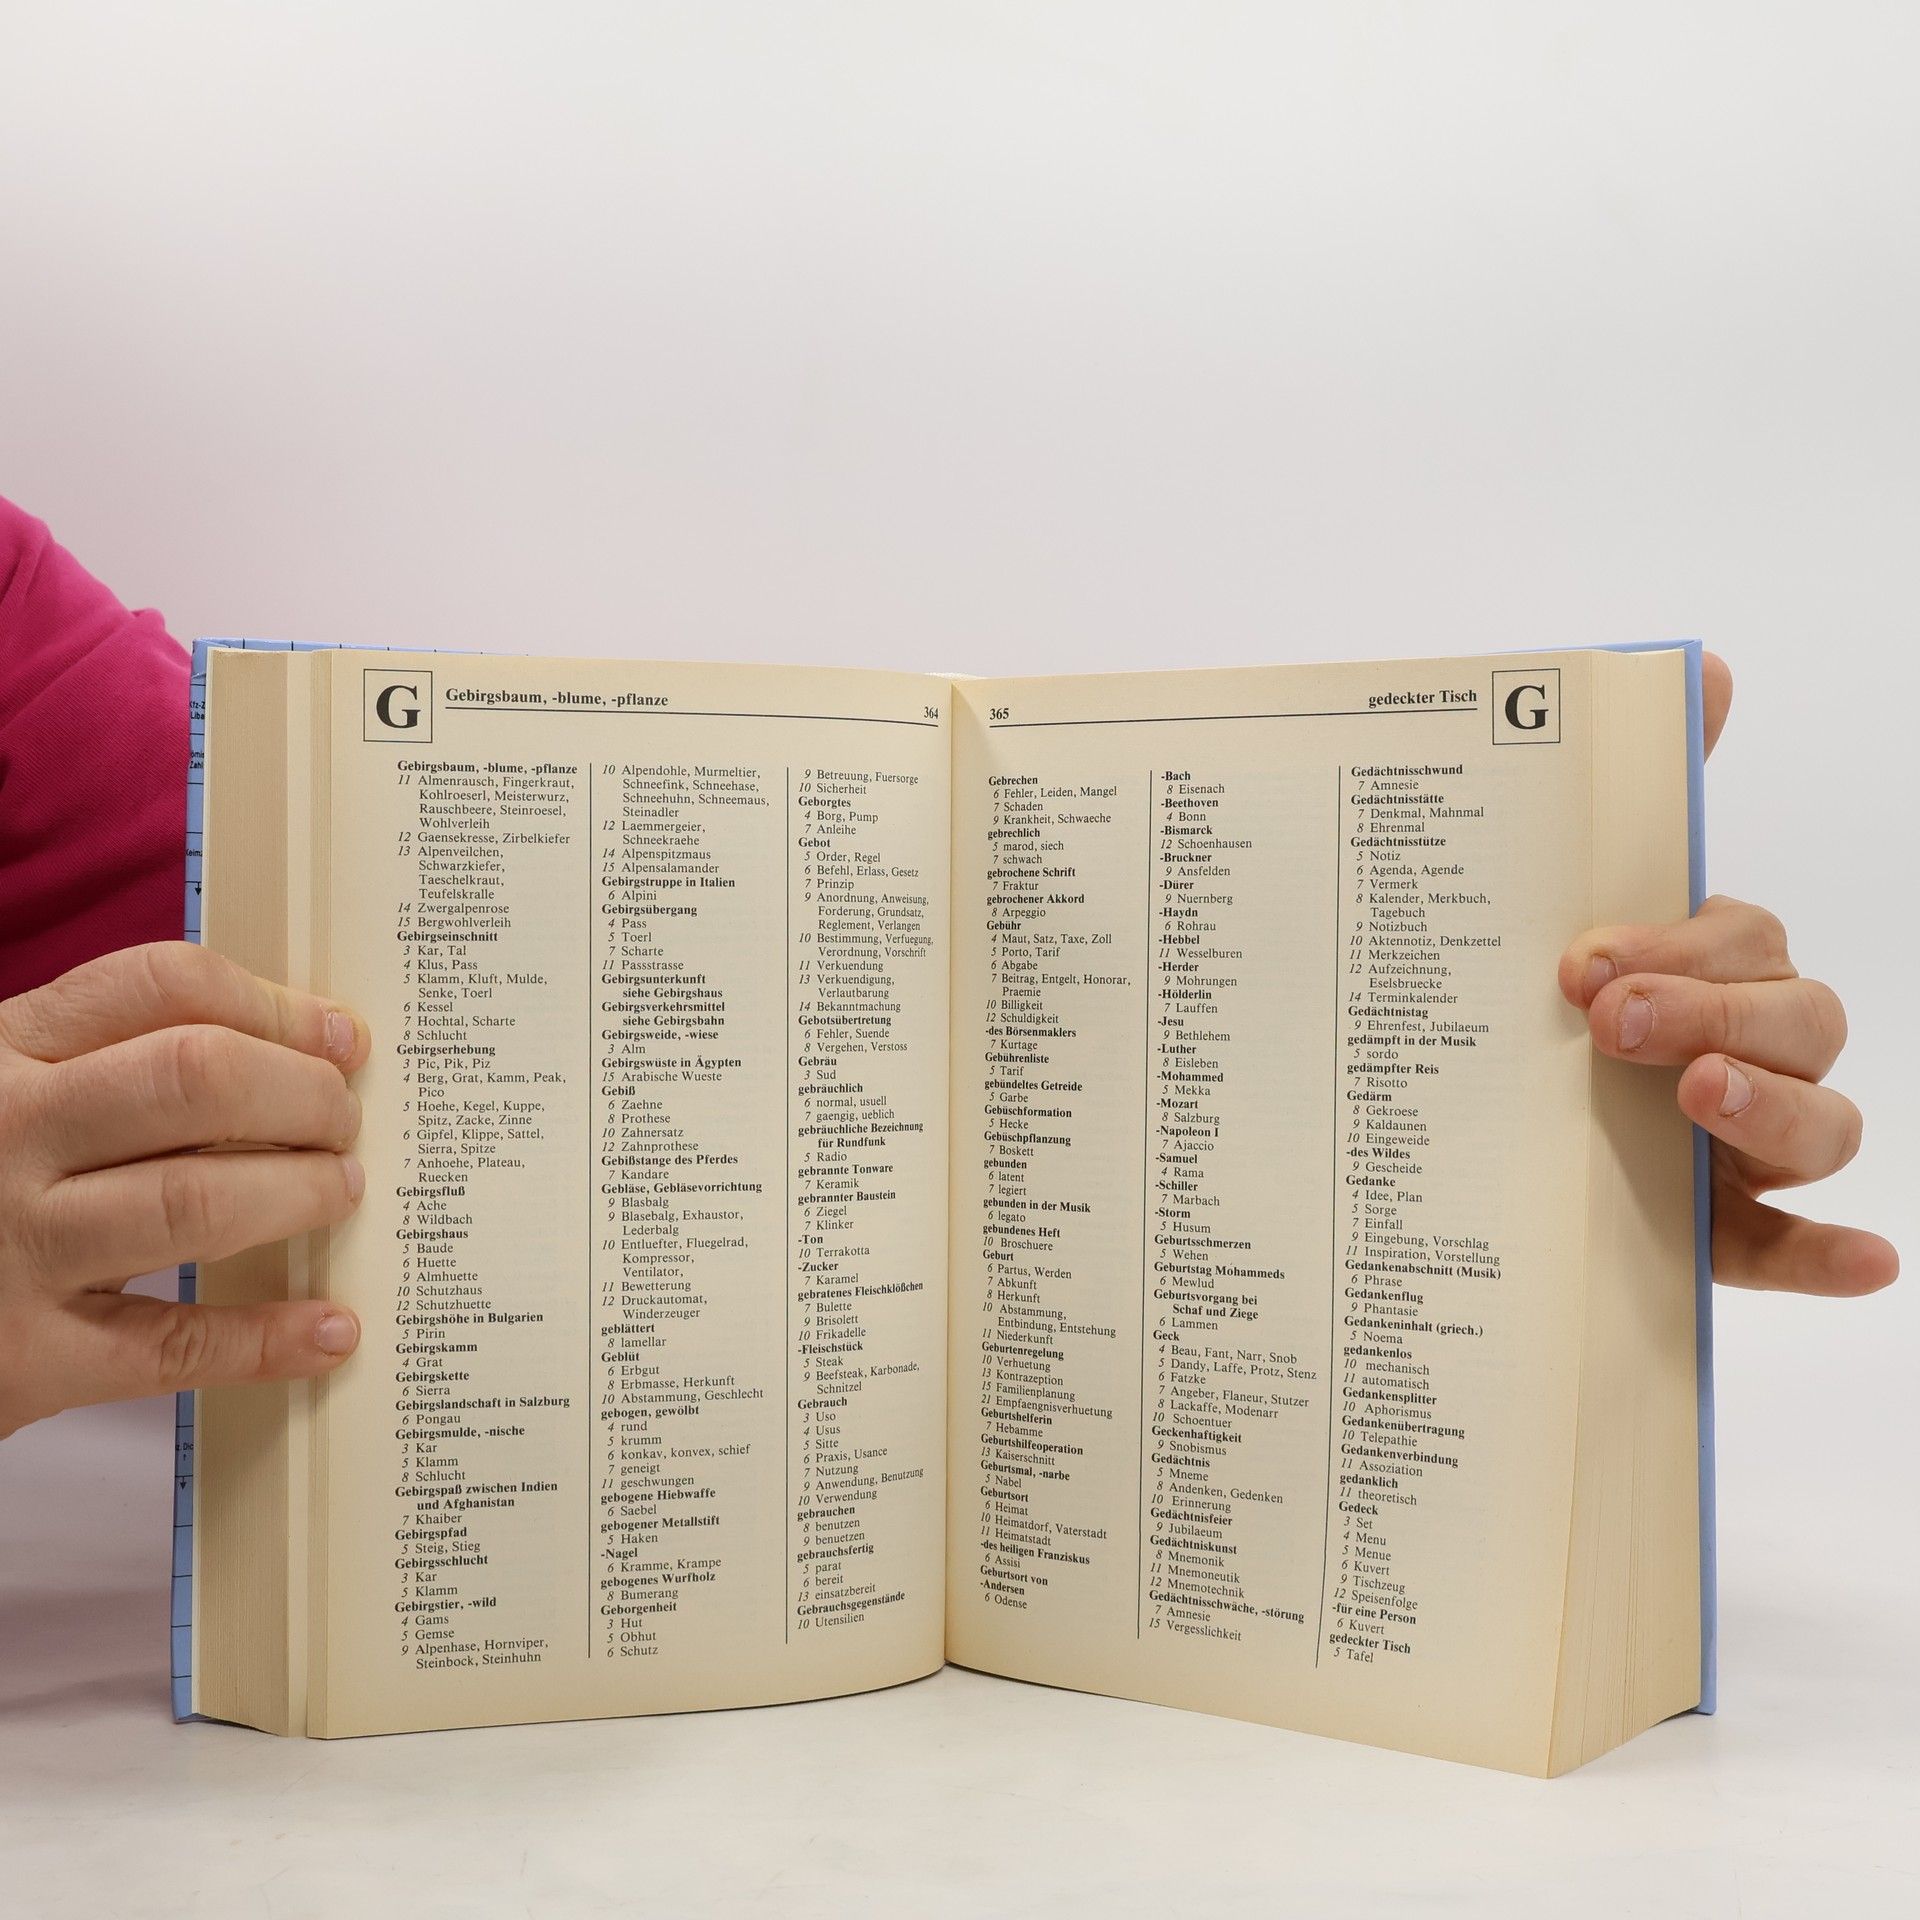 G
Gebirgsbaum, -blume, -pflanze
364
Gebirgsbaum, -blume, -pflanze
11 Almenrausch, Fingerkraut,
Kohlroeserl, Meisterwurz,
Rauschbeere, Steinroesel,
Wohlverleih
12 Gaensekresse, Zirbelkiefer
13 Alpenveilchen,
Schwarzkiefer,
Taeschelkraut,
Teufelskralle
14 Zwergalpenrose
15 Bergwohlverleih
Gebirgseinschnitt
3 Kar, Tal
4 Klus, Pass
5 Klamm, Kluft, Mulde,
Senke, Toerl
6 Kessel
7 Hochtal, Scharte
8 Schlucht
Gebirgserhebung
3 Pic, Pik, Piz
4 Berg, Grat, Kamm, Peak,
Pico
5 Hoehe, Kegel, Kuppe,
Spitz, Zacke, Zinne
6 Gipfel, Klippe, Sattel,
Sierra, Spitze
7 Anhoehe, Plateau,
Ruecken
Gebirgsfluß
4 Ache
8 Wildbach
Gebirgshaus
5 Baude
6 Huette
9 Almhuette
10 Schutzhaus
12 Schutzhuette
Gebirgshöhe in Bulgarien
5 Pirin
Gebirgskamm
4 Grat
Gebirgskette
6 Sierra
Gebirgslandschaft in Salzburg
6 Pongau
Gebirgsmulde, -nische
3 Kar
5 Klamm
8 Schlucht
Gebirgspaß zwischen Indien
und Afghanistan
7 Khaiber
Gebirgspfad
5 Steig, Stieg
Gebirgsschlucht
3 Kar
5 Klamm
Gebirgstier, -wild
4 Gams
5 Gemse
9 Alpenhase, Hornviper,
Steinbock, Steinhuhn
10 Alpendohle, Murmeltier,
Schneefink, Schneehase,
Schneehuhn, Schneemaus,
Steinadler
12 Laemmergeier,
Schneekraehe
14 Alpenspitzmaus
15 Alpensalamander
Gebirgstruppe in Italien
6 Alpini
Gebirgsübergang
4 Pass
5 Toerl
7 Scharte
11 Passstrasse
Gebirgsunterkunft
siehe Gebirgshaus
Gebirgsverkehrsmittel
siehe Gebirgsbahn
Gebirgsweide, -wiese
3 Alm
Gebirgswüste in Ägypten
15 Arabische Wueste
Gebiß
6 Zaehne
8 Prothese
10 Zahnersatz
12 Zahnprothese
Gebißstange des Pferdes
7 Kandare
Gebläse, Gebläsevorrichtung
9 Blasbalg
9 Blasebalg, Exhaustor,
Lederbalg
10 Entluefter, Fluegelrad,
Kompressor,
Ventilator,
11 Bewetterung
12 Druckautomat,
Winderzeuger
geblättert
8 lamellar
Geblüt
6 Erbgut
8 Erbmasse, Herkunft
10 Abstammung, Geschlecht
gebogen, gewölbt
4 rund
5 krumm
6 konkav, konvex, schief
7 geneigt
11 geschwungen
gebogene Hiebwaffe
6 Saebel
gebogener Metallstift
5 Haken
-Nagel
6 Kramme, Krampe
gebogenes Wurfholz
8 Bumerang
Geborgenheit
3 Hut
5 Obhut
6 Schutz
9 Betreuung, Fuersorge
10 Sicherheit
Geborgtes
4 Borg, Pump
7 Anleihe
Gebot
5 Order, Regel
6 Befehl, Erlass, Gesetz
7 Prinzip
9 Anordnung, Anweisung,
Forderung, Grundsatz,
Reglement, Verlangen
10 Bestimmung, Verfuegung,
Verordnung, Vorschrift
11 Verkuendung
13 Verkuendigung,
Verlautbarung
14 Bekanntmachung
Gebotsübertretung
6 Fehler, Suende
8 Vergehen, Verstoss
Gebräu
3 Sud
gebräuchlich
6 normal, usuell
7 gaengig, ueblich
gebräuchliche Bezeichnung
für Rundfunk
5 Radio
gebrannte Tonware
7 Keramik
gebrannter Baustein
6 Ziegel
7 Klinker
-Ton
10 Terrakotta
-Zucker
7 Karamel
gebratenes Fleischklößchen
7 Bulette
9 Brisolett
10 Frikadelle
-Fleischstück
5 Steak
9 Beefsteak, Karbonade,
Schnitzel
Gebrauch
3 Uso
4 Usus
5 Sitte
6 Praxis, Usance
7 Nutzung
9 Anwendung, Benutzung
10 Verwendung
gebrauchen
8 benutzen
9 benuetzen
gebrauchsfertig
5 parat
6 bereit
13 einsatzbereit
Gebrauchsgegenstände
10 Utensilien
365
gedeckter Tisch
G
Gebrechen
6 Fehler, Leiden, Mangel
7 Schaden
9 Krankheit, Schwaeche
gebrechlich
5 marod, siech
7 schwach
gebrochene Schrift
7 Fraktur
gebrochener Akkord
8 Arpeggio
Gebühr
4 Maut, Satz, Taxe, Zoll
5 Porto, Tarif
6 Abgabe
7 Beitrag, Entgelt, Honorar,
Praemie
10 Billigkeit
12 Schuldigkeit
-des Börsenmaklers
7 Kurtage
Gebührenliste
5 Tarif
gebündeltes Getreide
5 Garbe
Gebüschformation
5 Hecke
Gebüschpflanzung
7 Boskett
gebunden
6 latent
7 legiert
gebunden in der Musik
6 legato
gebundenes Heft
10 Broschuere
Geburt
6 Partus, Werden
7 Abkunft
8 Herkunft
10 Abstammung,
Entbindung, Entstehung
11 Niederkunft
Geburtenregelung
10 Verhuetung
13 Kontrazeption
15 Familienplanung
21 Empfaengnisverhuetung
Geburtshelferin
7 Hebamme
Geburtshilfeoperation
13 Kaiserschnitt
Geburtsmal, -narbe
5 Nabel
Geburtsort
6 Heimat
10 Heimatdorf, Vaterstadt
11 Heimatstadt
-des heiligen Franziskus
6 Assisi
Geburtsort von
-Andersen
6 Odense
-Bach
8 Eisenach
-Beethoven
4 Bonn
-Bismarck
12 Schoenhausen
-Bruckner
9 Ansfelden
-Dürer
9 Nuernberg
-Haydn
6 Rohrau
-Hebbel
11 Wesselburen
-Herder
9 Mohrungen
-Hölderlin
7 Lauffen
-Jesu
9 Bethlehem
-Luther
8 Eisleben
-Mohammed
5 Mekka
-Mozart
8 Salzburg
-Napoleon I
7 Ajaccio
-Samuel
4 Rama
-Schiller
7 Marbach
-Storm
5 Husum
Geburtsschmerzen
5 Wehen
Geburtstag Mohammeds
6 Mewlud
Geburtsvorgang bei
Schaf und Ziege
6 Lammen
Geck
4 Beau, Fant, Narr, Snob
5 Dandy, Laffe, Protz, Stenz
6 Fatzke
7 Angeber, Flaneur, Stutzer
8 Lackaffe, Modenarr
10 Schoentuer
Geckenhaftigkeit
9 Snobismus
Gedächtnis
5 Mneme
8 Andenken, Gedenken
10 Erinnerung
Gedächtnisfeier
9 Jubilaeum
Gedächtniskunst
8 Mnemonik
11 Mnemoneutik
12 Mnemotechnik
Gedächtnisschwäche, -störung
7 Amnesie
15 Vergesslichkeit
Gedächtnisschwund
7 Amnesie
Gedächtnisstätte
7 Denkmal, Mahnmal
8 Ehrenmal
Gedächtnisstütze
5 Notiz
6 Agenda, Agende
7 Vermerk
8 Kalender, Merkbuch,
Tagebuch
9 Notizbuch
10 Aktennotiz, Denkzettel
11 Merkzeichen
12 Aufzeichnung,
Eselsbruecke
14 Terminkalender
Gedächtnistag
9 Ehrenfest, Jubilaeum
gedämpft in der Musik
5 sordo
gedämpfter Reis
7 Risotto
Gedärm
8 Gekroese
9 Kaldaunen
10 Eingeweide
-des Wildes
9 Gescheide
Gedanke
4 Idee, Plan
5 Sorge
7 Einfall
9 Eingebung, Vorschlag
11 Inspiration, Vorstellung
Gedankenabschnitt (Musik)
6 Phrase
Gedankenflug
9 Phantasie
Gedankeninhalt (griech.)
5 Noema
gedankenlos
10 mechanisch
11 automatisch
Gedankensplitter
10 Aphorismus
Gedankenübertragung
10 Telepathie
Gedankenverbindung
11 Assoziation
gedanklich
11 theoretisch
Gedeck
3 Set
4 Menu
5 Menue
6 Kuvert
9 Tischzeug
12 Speisenfolge
-für eine Person
6 Kuvert
gedeckter Tisch
5 Tafel